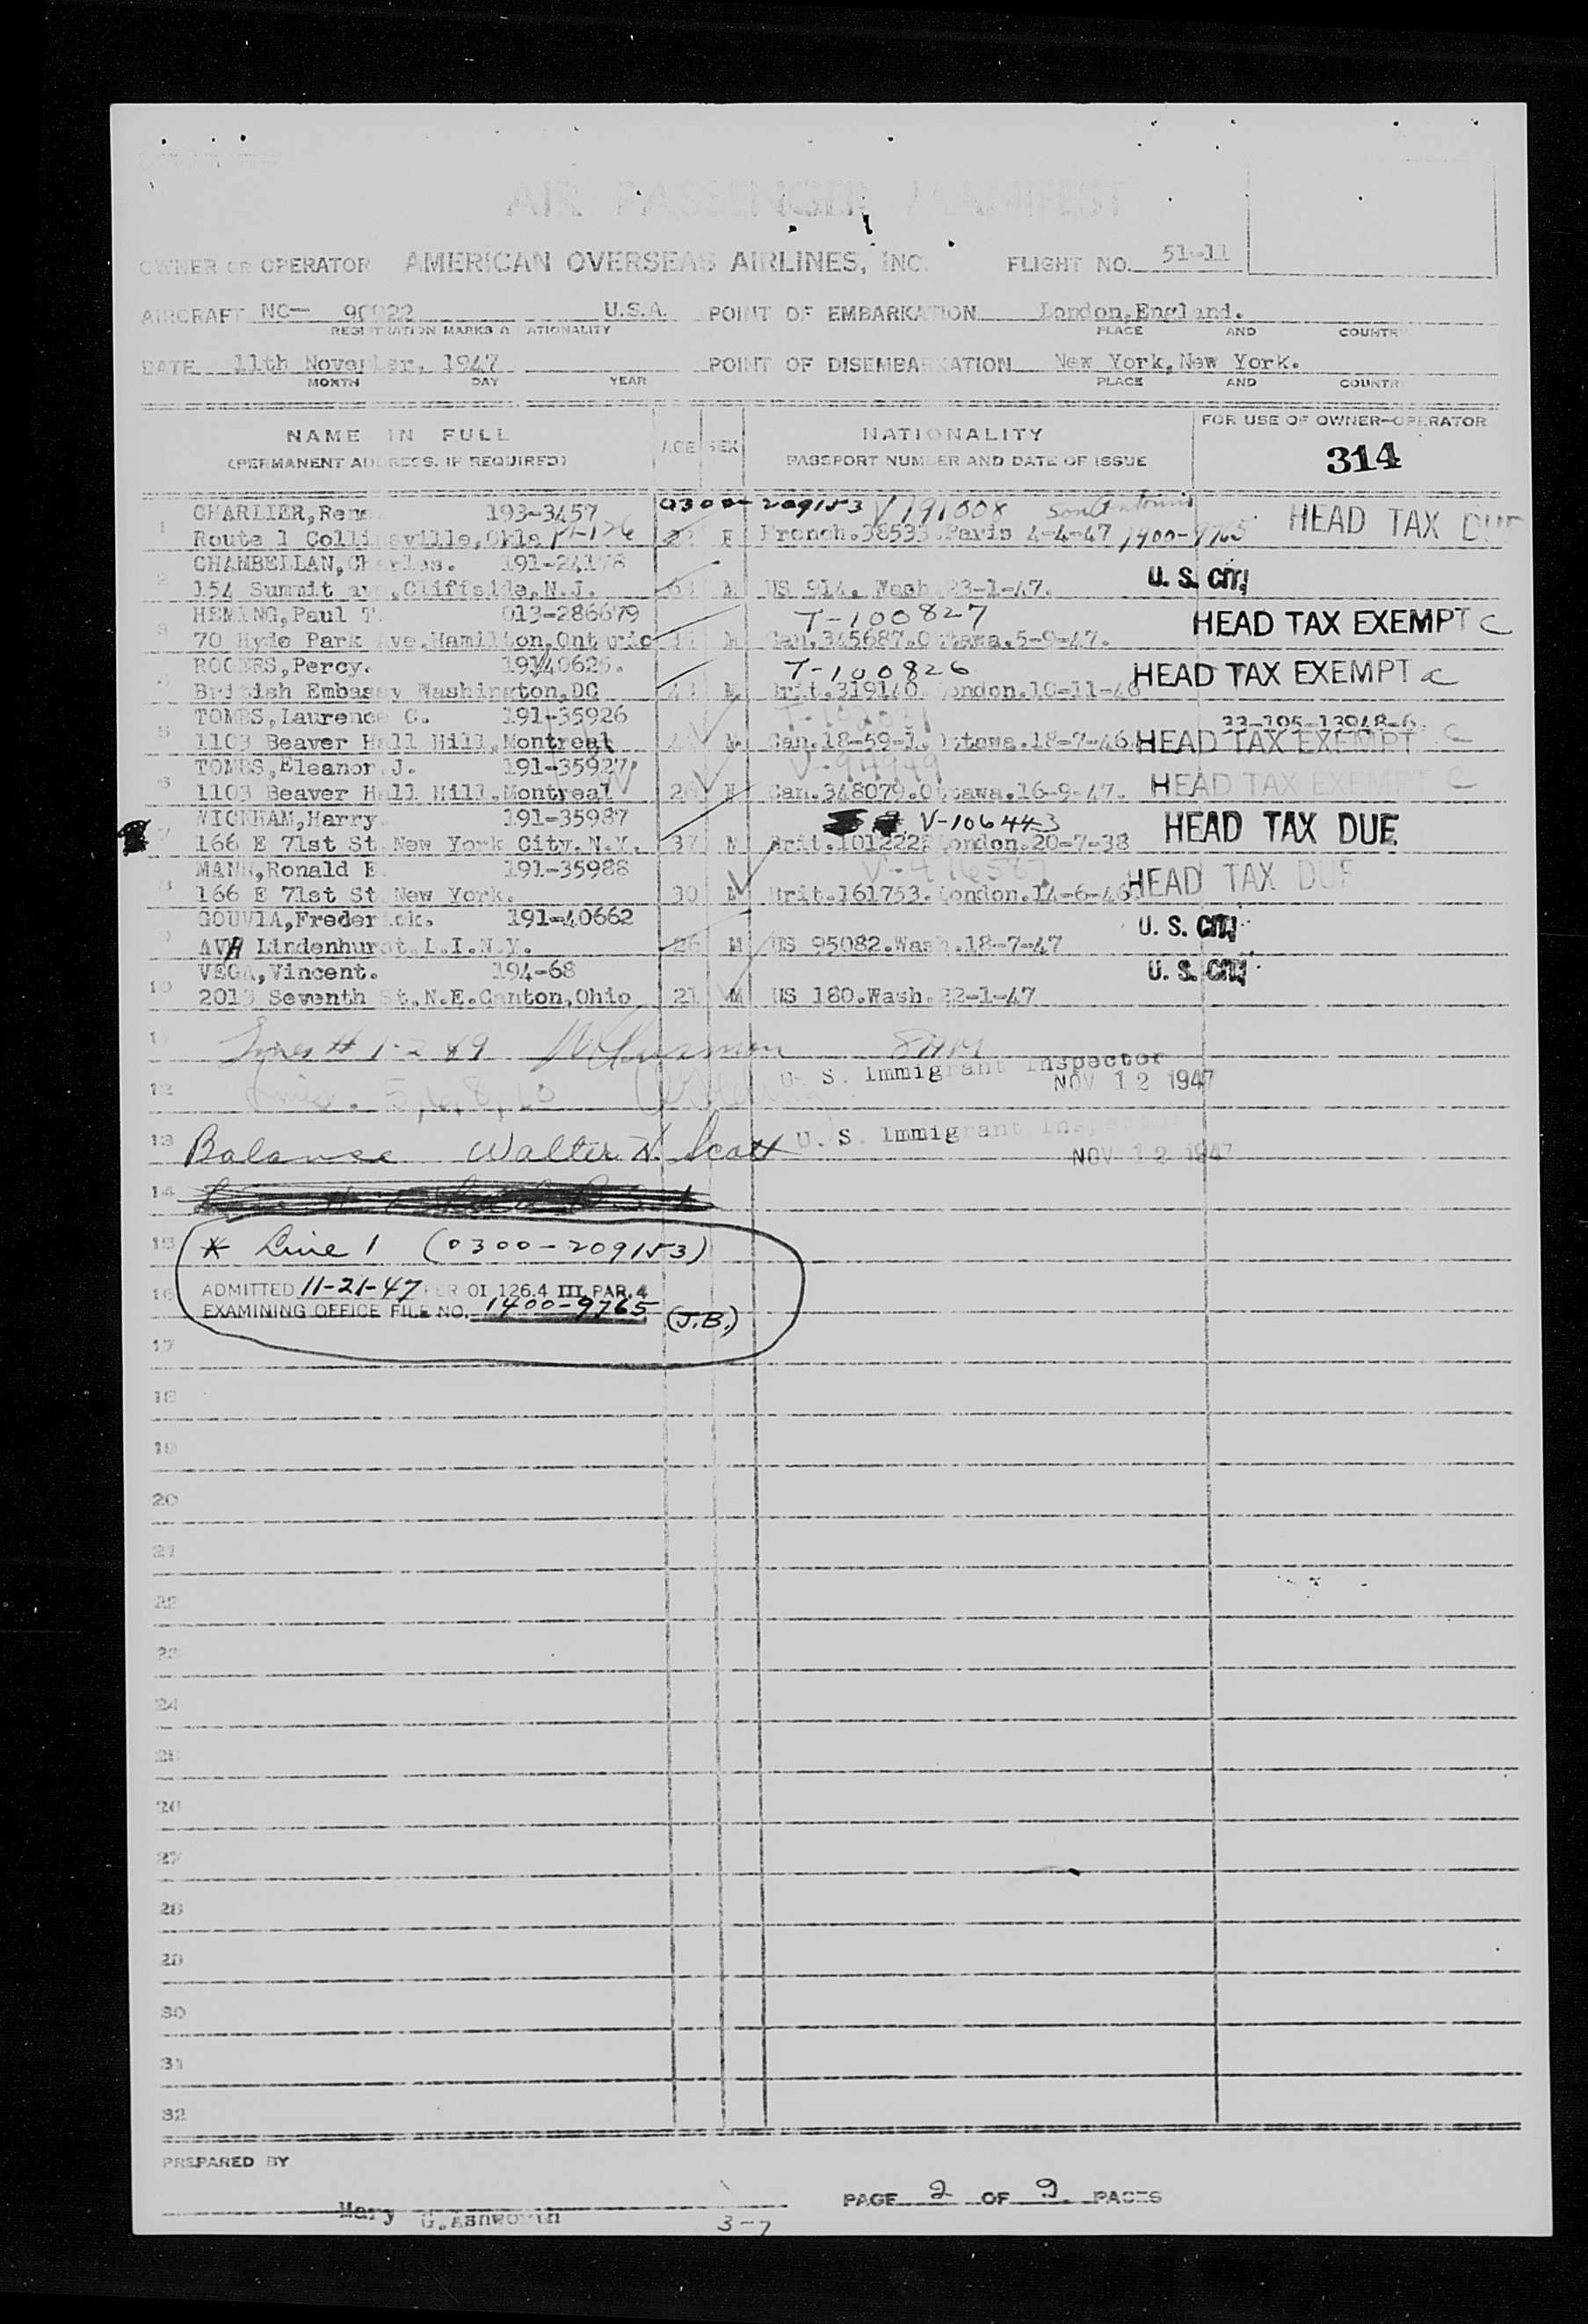 AIR PASSENGER MANIFEST
OWNER OR OPERATOR AMERICAN OVERSEAS AIRLINES, INC. FLIGHT NO. 51-11
AIRCRAFT NC- 90922 U.S.A. POINT OF EMBARKATION London,England.
REGISTRATION MARKS & NATIONALITY PLACE AND COUNTRY
DATE 11th November, 1947 POINT OF DISEMBARKATION New York,New York.
MONTH DAY YEAR PLACE AND COUNTRY
NAME IN FULL AGE SEX NATIONALITY FOR USE OF OWNER-OPERATOR
(PERMANENT ADDRESS, IF REQUIRED) PASSPORT NUMBER AND DATE OF ISSUE 314
CHARLIER,Rene 193-3457 0300-209153 V191608 San Antonio
1 Route 1 Collinsville,Okla F French.38533.Paris 4-4-47 1400-9765 HEAD TAX DUE
CHAMBELLAN,Charles. 191-24178
2 154 Summit ave,Cliffside,N.J. M US 914. Wash.23-1-47. U. S. CIT.
HEMING,Paul T. 013-286679 T-100827
3 70 Hyde Park Ave.Hamilton,Ontario M Can.345687.Ottawa.5-9-47. HEAD TAX EXEMPT C
ROGERS,Percy. 191-40625. T-100826
4 British Embassy Washington,DC M. Brit.319140.London.10-11-46 HEAD TAX EXEMPT C
TOMBS,Laurence C. 191-35926 33-195-13948-6.
5 1103 Beaver Hall Hill,Montreal M. Can.18-59-1.Ottawa.18-7-46 HEAD TAX EXEMPT C
TOMBS,Eleanor J. 191-35927 V-94949
6 1103 Beaver Hall Hill.Montreal 26 F Can.348079.Ottawa.16-9-47. HEAD TAX EXEMPT C
WICKHAM,Harry. 191-35987 V-106443
7 166 E 71st St New York City.N.Y. 37 M Brit.101222.London.20-7-38 HEAD TAX DUE
MANN,Ronald E. 191-35988
8 166 E 71st St New York. 30 M Brit.161753.London.14-6-46 HEAD TAX DUE
GOUVIA,Frederick. 191-40662
9 AVE Lindenhurst,L.I.N.Y. 26 M US 95082.Wash.18-7-47 U. S. CIT.
VEGA,Vincent. 194-68
10 2013 Seventh St,N.E.Canton,Ohio 21 M US 180.Wash.22-1-47 U. S. CIT.
11 Lines # 1-2 & 9
12 Lines. 5,6,8,10 U. S. Immigrant Inspector
NOV 12 1947
13 Balance Walter N. Scott U. S. Immigrant Inspector
NOV 12 1947
14
15 * Line 1 (0300-209153)
16 ADMITTED 11-21-47 PER OI 126.4 III PAR.4
EXAMINING OFFICE FILE NO. 1400-9765 (J.B.)
17
18
19
20
21
22
23
24
25
26
27
28
29
30
31
32
PREPARED BY
Mary G.Ashworth PAGE 2 OF 9 PAGES
3-7